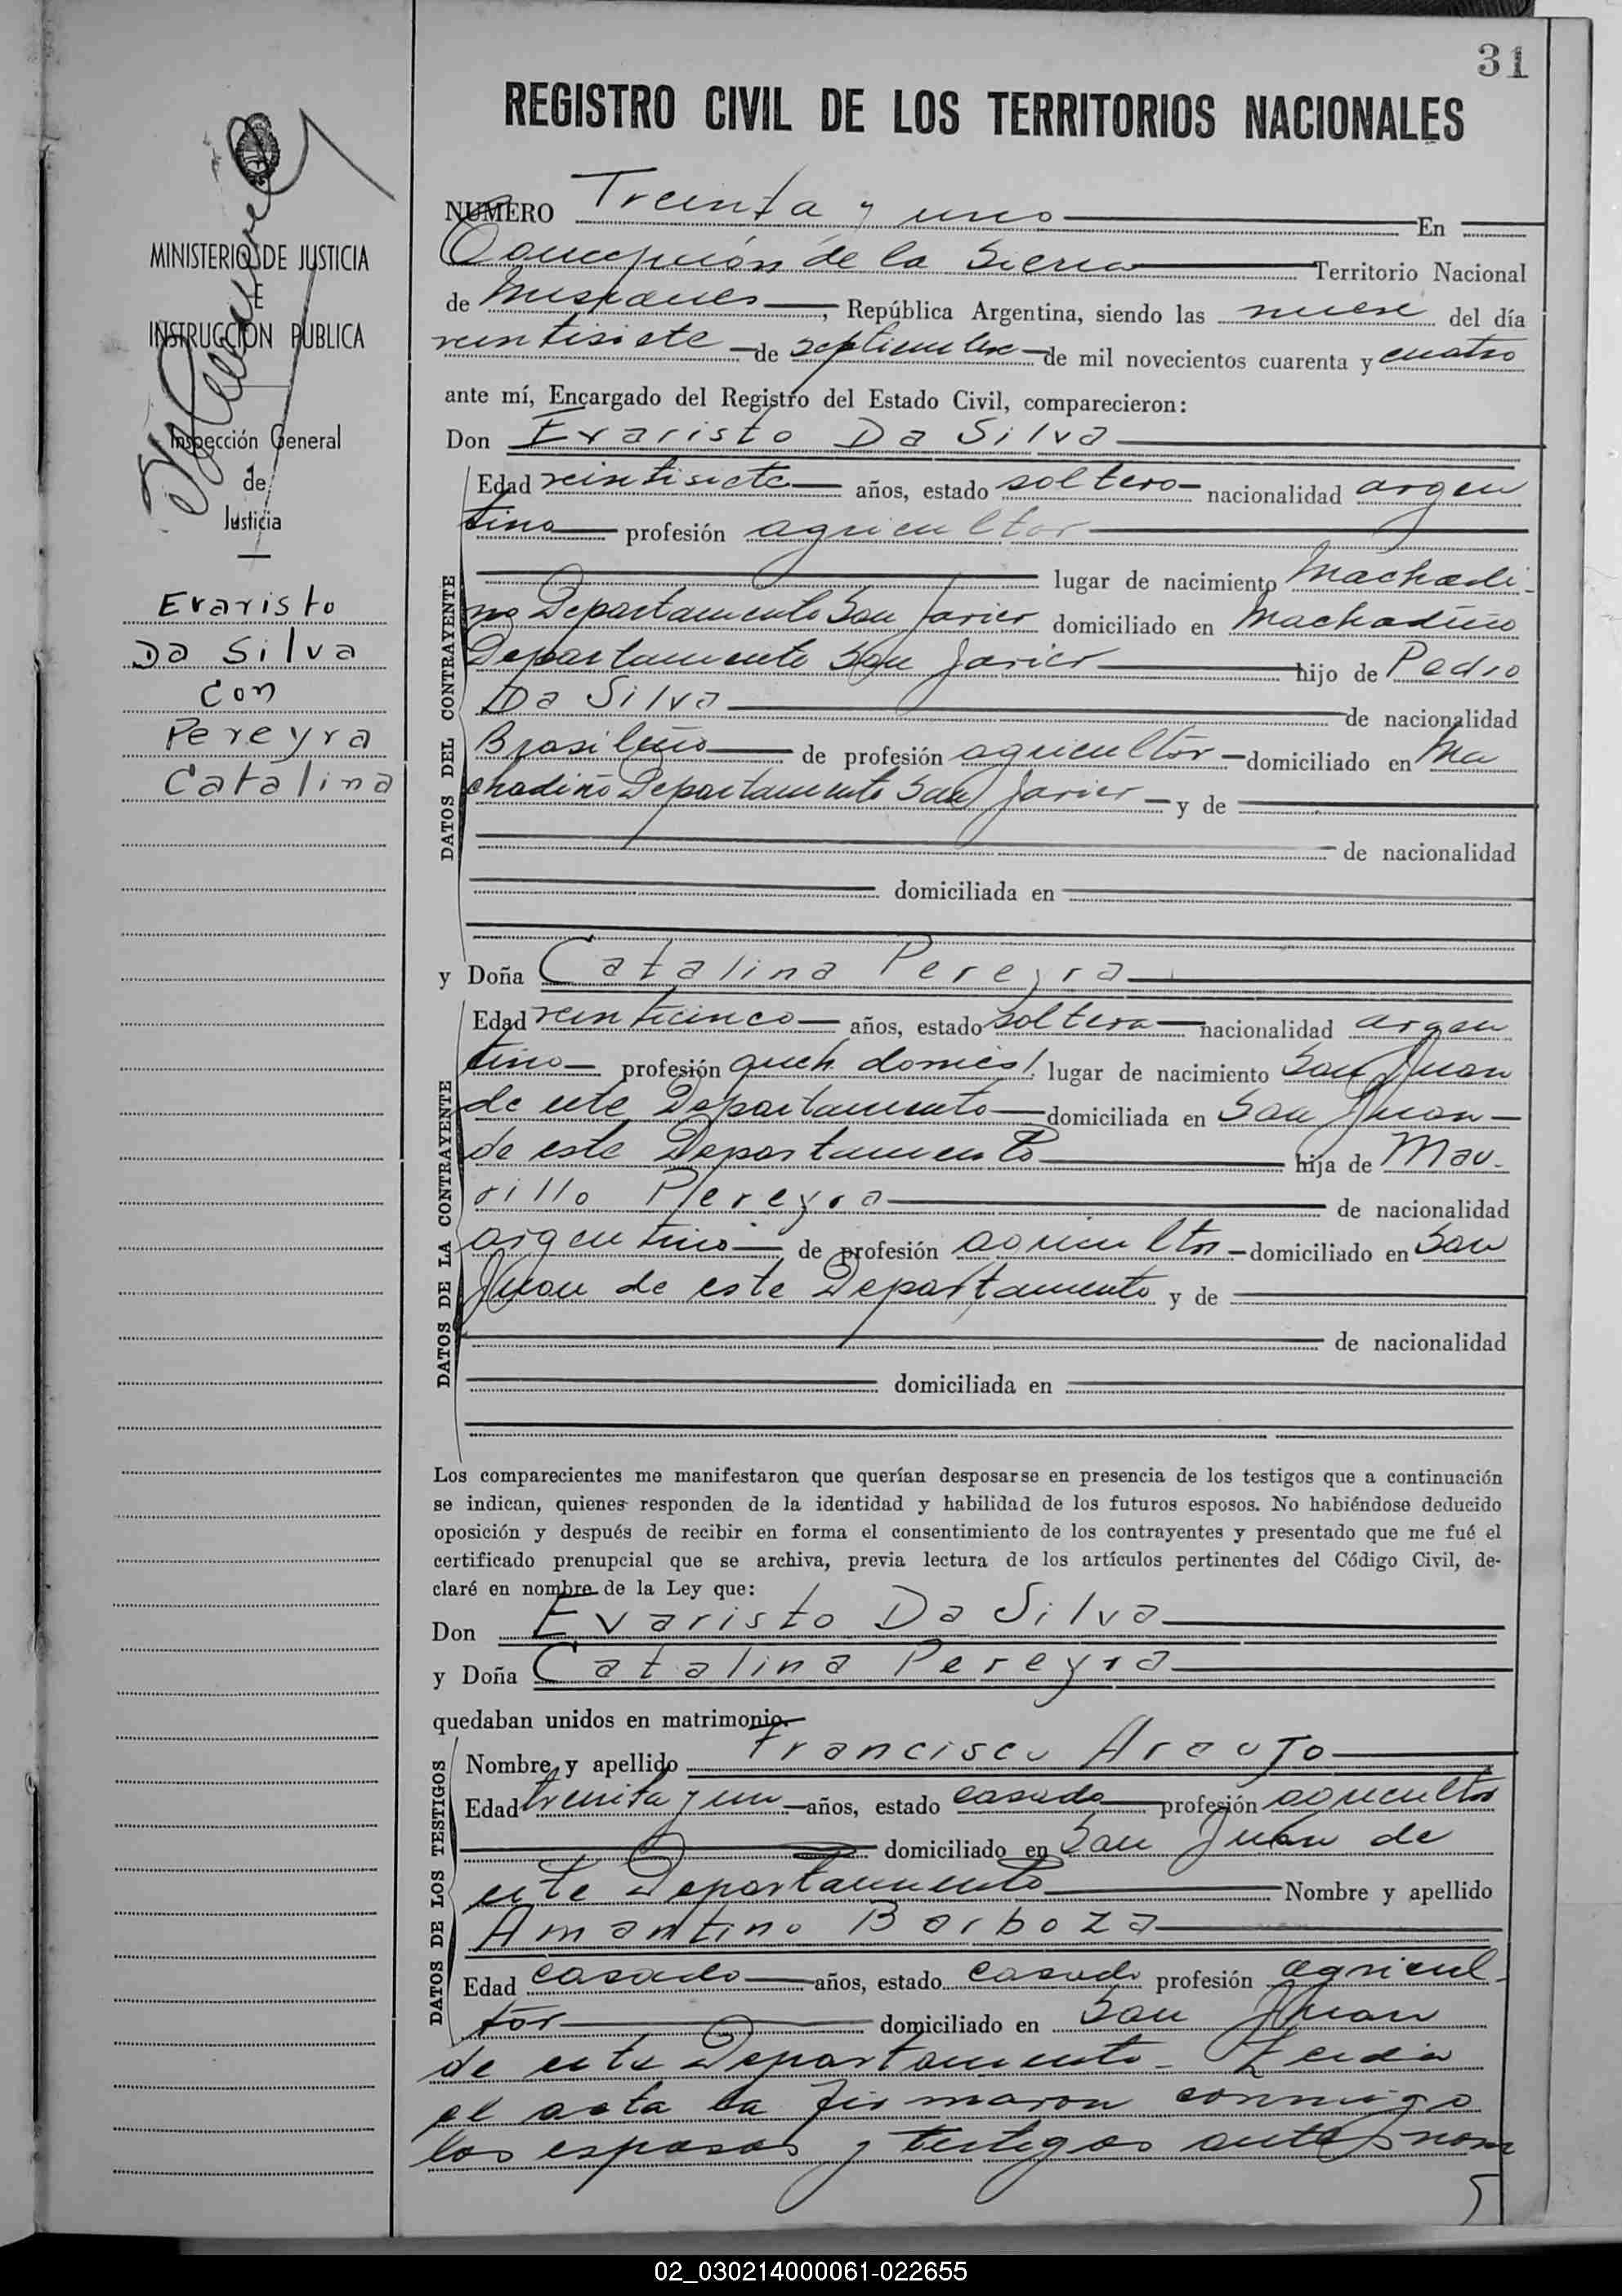 31
REGISTRO CIVIL DE LOS TERRITORIOS NACIONALES
MINISTERIO DE JUSTICIA
E
INSTRUCCIÓN PUBLICA
Inspección General
de
Justicia
Evaristo
Da Silva
con
Pereyra
Catalina
NUMERO Treinta y uno En
Concepción de la Sierra Territorio Nacional
de Misiones, República Argentina, siendo las nueve del día
veintisiete de septiembre de mil novecientos cuarenta y cuatro
ante mí, Encargado del Registro del Estado Civil, comparecieron:
Don Evaristo Da Silva
DATOS DEL CONTRAYENTE
Edad veintisiete años, estado soltero nacionalidad argen
tino profesión agricultor
lugar de nacimiento Machadi-
ño Departamento San Javier domiciliado en Machadiño
Departamento San Javier hijo de Pedro
Da Silva de nacionalidad
Brasileño de profesión agricultor domiciliado en Ma
chadiño Departamento San Javier y de
de nacionalidad
domiciliada en
y Doña Catalina Pereyra
DATOS DE LA CONTRAYENTE
Edad veinticinco años, estado soltera nacionalidad argen
tina profesión queh. domés/. lugar de nacimiento San Juan
de este Departamento domiciliada en San Juan
de este Departamento hija de Mau-
rillo Pereyra de nacionalidad
argentino de profesión agricultor domiciliado en San
Juan de este Departamento y de
de nacionalidad
domiciliada en
Los comparecientes me manifestaron que querían desposarse en presencia de los testigos que a continuación
se indican, quienes responden de la identidad y habilidad de los futuros esposos. No habiéndose deducido
oposición y después de recibir en forma el consentimiento de los contrayentes y presentado que me fué el
certificado prenupcial que se archiva, previa lectura de los artículos pertinentes del Código Civil, de-
claré en nombre de la Ley que:
Don Evaristo Da Silva
y Doña Catalina Pereyra
quedaban unidos en matrimonio.
DATOS DE LOS TESTIGOS
Nombre y apellido Francisco Araujo
Edad treinta y un años, estado casado profesión agricultor
domiciliado en San Juan de
este Departamento Nombre y apellido
Amantino Barboza
Edad casado años, estado casado profesión agricul-
tor domiciliado en San Juan
de este Departamento. Leida
el acta la firmaron conmigo
los esposos y testigos antes nom
02_030214000061-022655